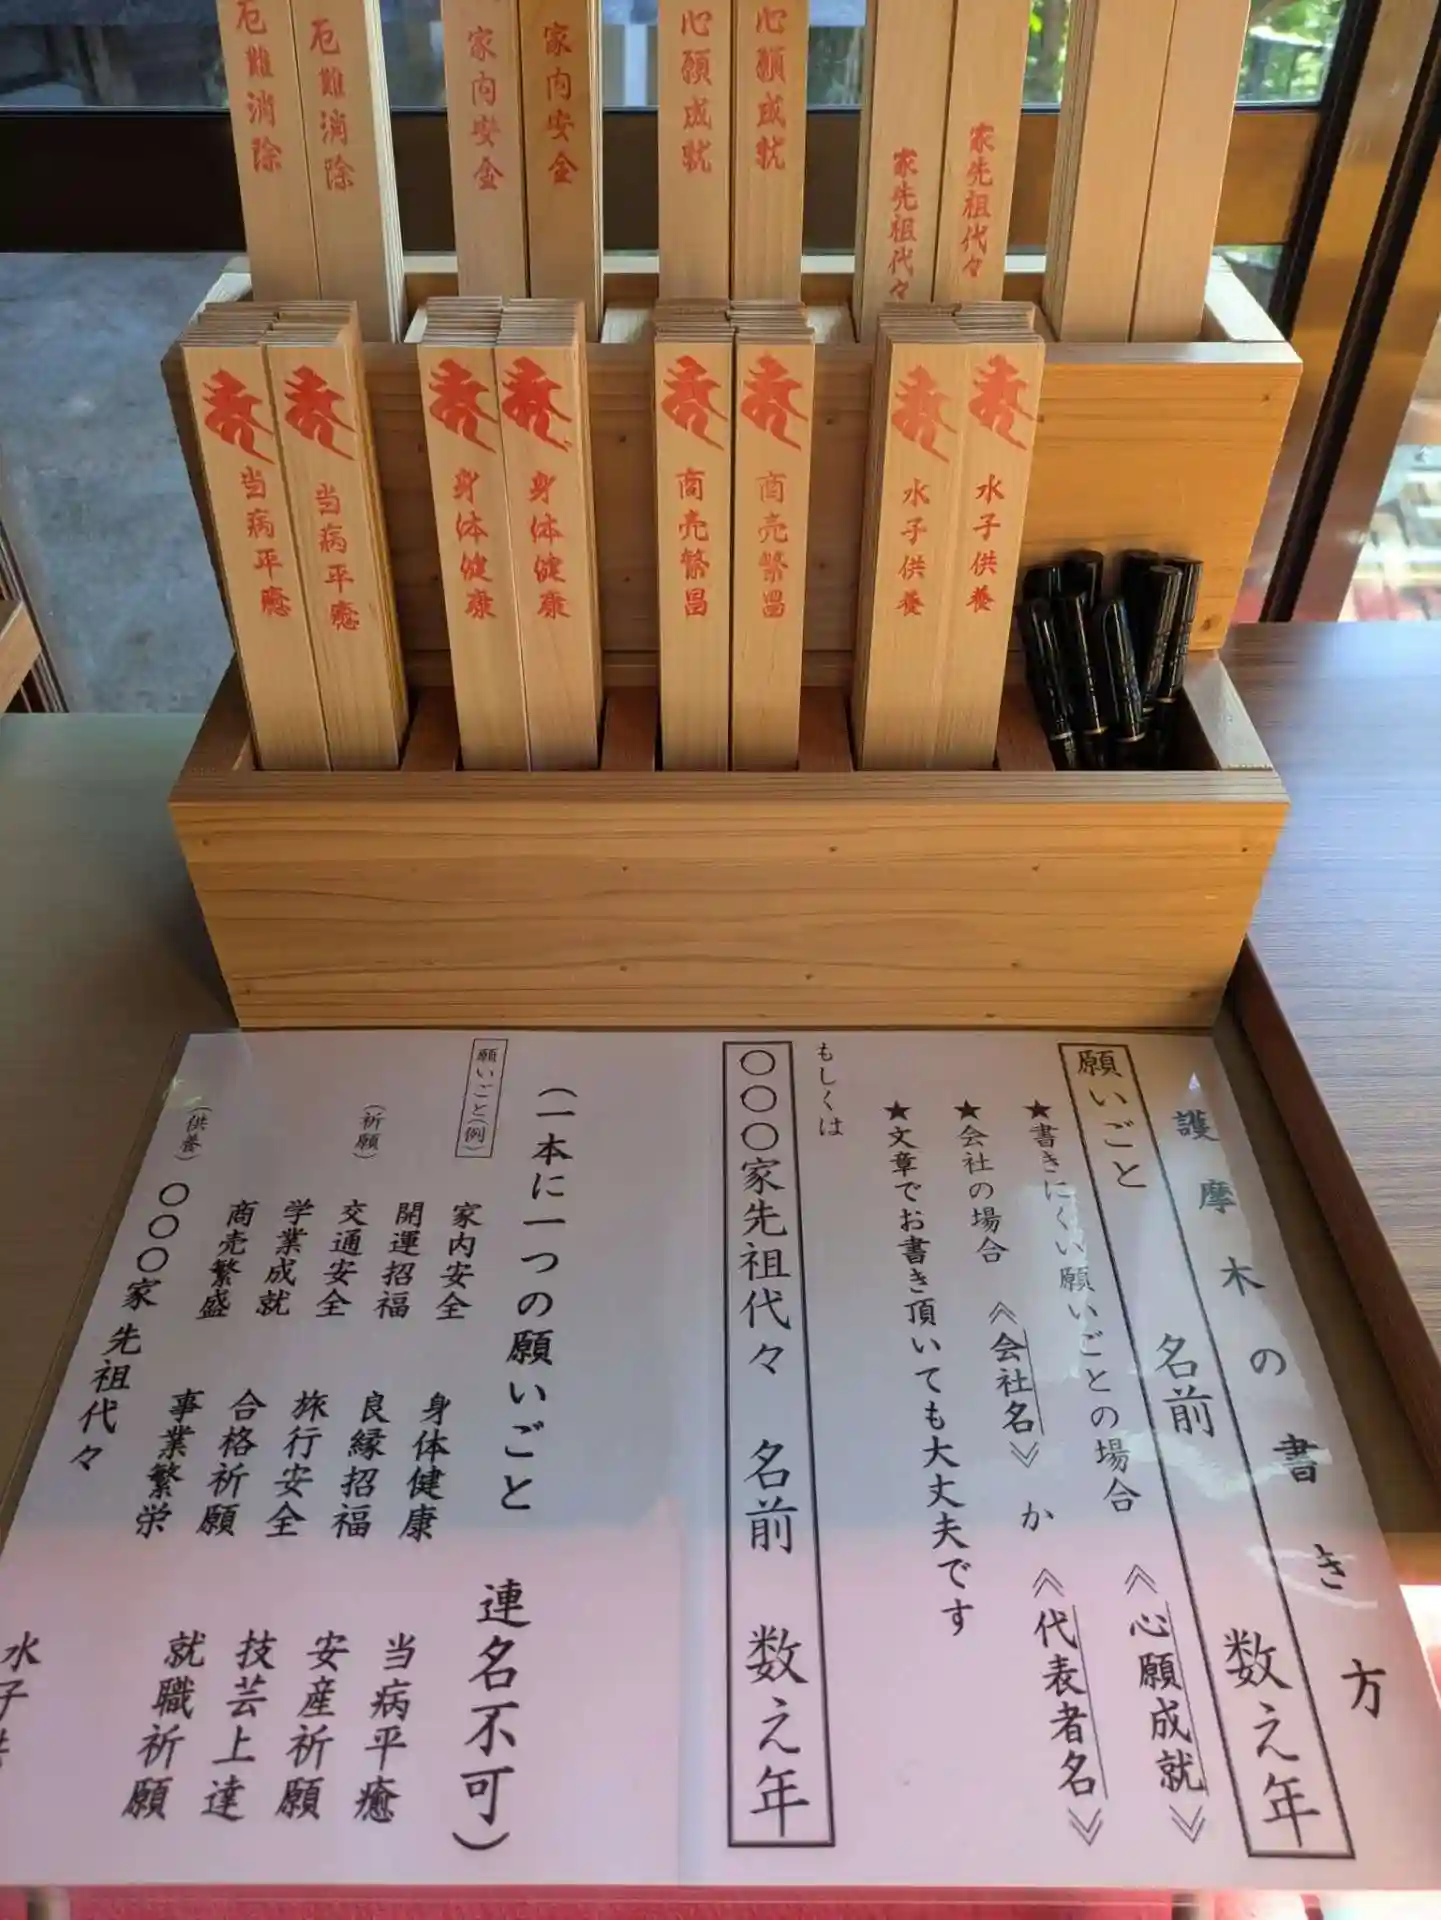 厄難消除
厄難消除
家内安全
家内安全
心願成就
心願成就
家先祖代々
家先祖代々
当病平癒
当病平癒
身体健康
身体健康
商売繁昌
商売繁昌
水子供養
水子供養
護摩木の書き方
願いごと 名前 数え年
★書きにくい願いごとの場合 《心願成就》
★会社の場合 《会社名》か《代表者名》
★文章でお書き頂いても大丈夫です
もしくは
〇〇〇家先祖代々 名前 数え年
(一本に一つの願いごと 連名不可)
願いごと(例)
家内安全 身体健康 当病平癒
(祈願) 開運招福 良縁招福 安産祈願
交通安全 旅行安全 技芸上達
学業成就 合格祈願 就職祈願
商売繁盛 事業繁栄
(供養) 〇〇〇家先祖代々 水子